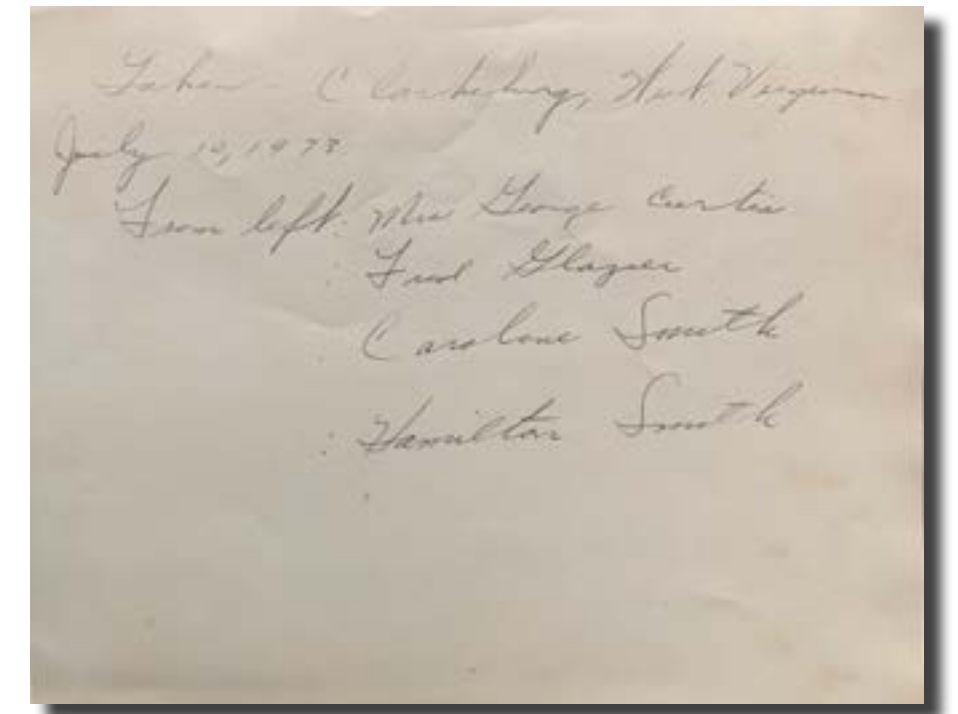 Taken - Clarksburg, West Virginia
July 10, 1973
From left: Mrs George Curtis
: Fred Glazier
: Caroline Smith
: Hamilton Smith